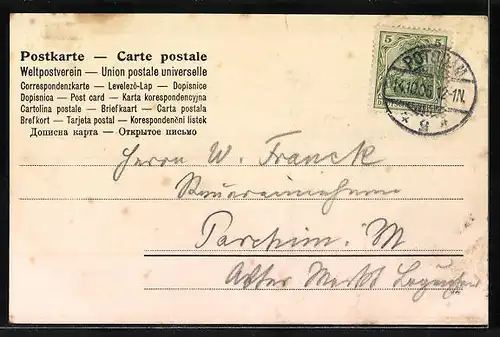 Postkarte — Carte postale
Weltpostverein — Union postale universelle
Correspondenzkarte — Levelező-Lap — Dopisnice
Dopisnica — Post card — Karta korespondencyjna
Cartolina postale — Briefkaart — Carta postala
Brefkort — Tarjeta postal — Korespondenční listek
Дописна карта — Открытое письмо
5 5
POTSDAM
14.10.05 12-1N.
* 9 *
Herrn W. Franck
Steuereinnehmer
Parchim. M
Alter Markt